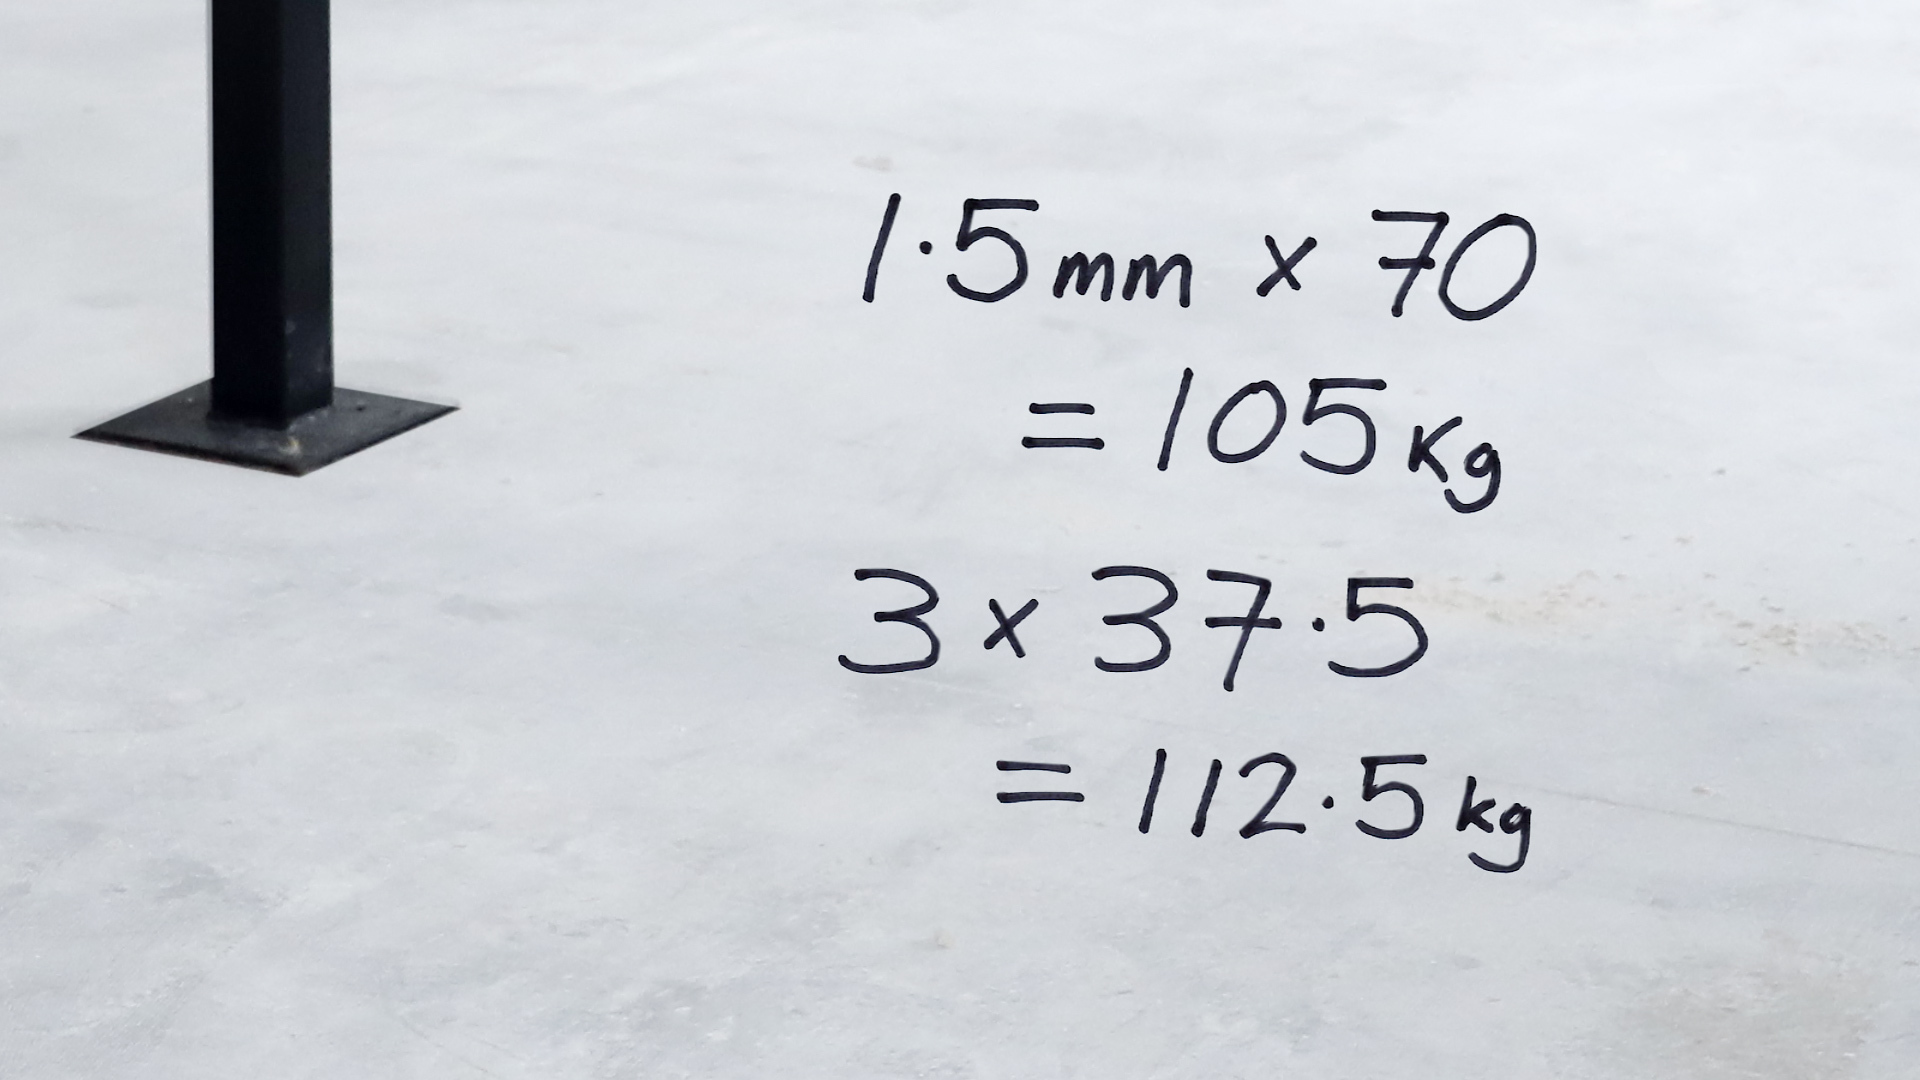 1.5mm x 70
= 105Kg
3 x 37.5
= 112.5kg